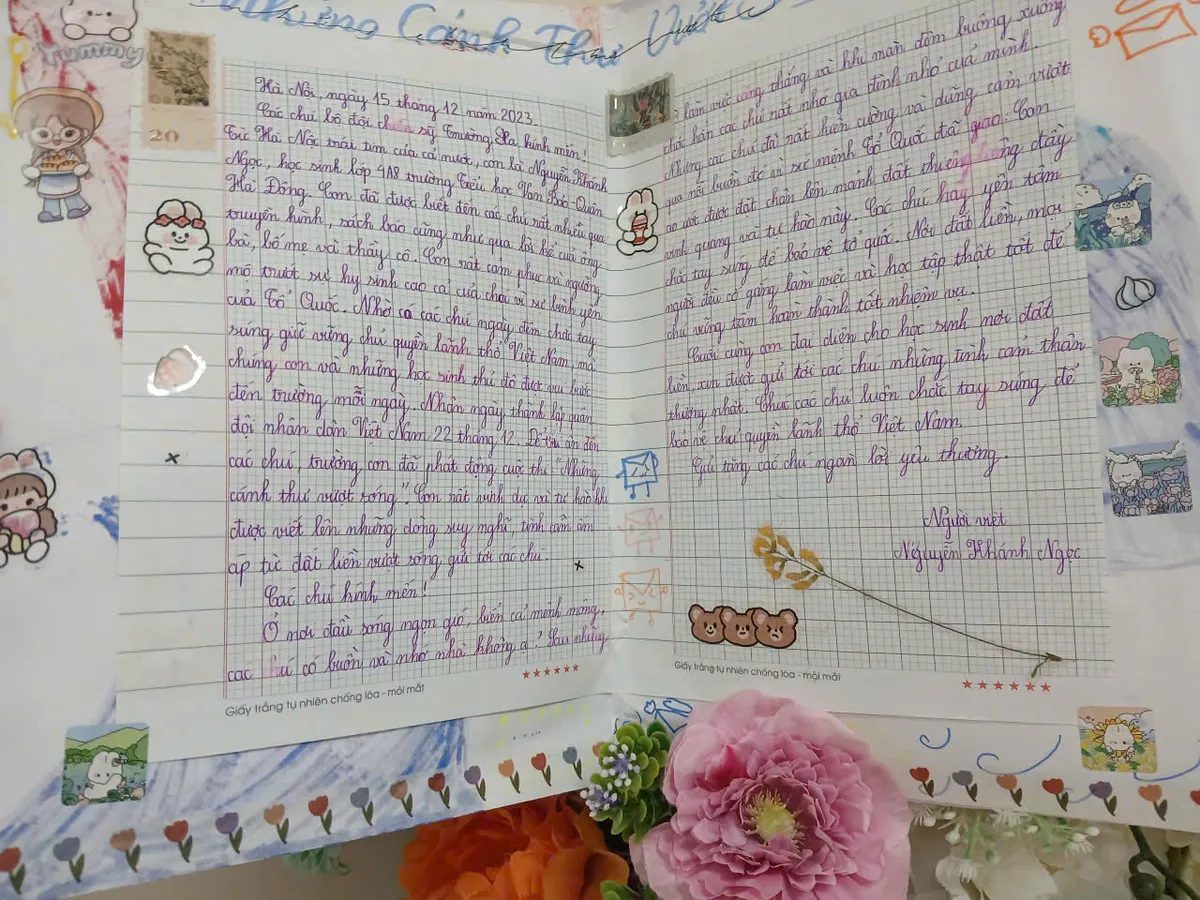 Những Cánh Thư Vượt S
Tummy
20
Hà Nội, ngày 15 tháng 12 năm 2023.
Các chú bộ đội chiến sỹ Trường Sa kính mến!
Từ Hà Nội trái tim của cả nước, con là Nguyễn Khánh
Ngọc, học sinh lớp 4A8 trường Tiểu học Văn Bảo - Quận
Hà Đông. Con đã được biết đến các chú rất nhiều qua
truyền hình, sách báo cũng như qua lời kể của ông
bà, bố mẹ và thầy cô. Con rất cảm phục và ngưỡng
mộ trượt sự hy sinh cao cả của chú vì sự bình yên
của Tổ Quốc. Nhờ có các chú ngày đêm chắc tay
súng giữ vững chủ quyền lãnh thổ Việt Nam, mà
chúng con và những học sinh thủ đô được vui bước
đến trường mỗi ngày. Nhân ngày thành lập quân
đội nhân dân Việt Nam 22 tháng 12. Để tri ân đến
các chú, trường con đã phát động cuộc thi "Những
cánh thư vượt sóng" Con rất vinh dự và tự hào khi
được viết lên những dòng suy nghĩ, tình cảm ấm
áp từ đất liền vượt sóng gửi tới các chú.
Các chú kính mến!
Ở nơi đầu sóng ngọn gió, biển cả mênh mông,
các chú có buồn và nhớ nhà không ạ? Sau những
Giấy trắng tự nhiên chống lóa - mỏi mắt
làm việc căng thẳng và khi màn đêm buông xuống
chắc hẳn các chú rất nhớ gia đình nhỏ của mình.
Nhưng các chú đã rất kiên cường và dũng cảm vượt
qua nỗi buồn đó vì sứ mệnh Tổ Quốc đã giao. Con
ao ước được đặt chân lên mảnh đất thiêng liêng đầy
vinh quang và tự hào này. Các chú hãy yên tâm
chắc tay súng để bảo vệ tổ quốc. Nơi đất liền, mọi
người đều cố gắng làm việc và học tập thật tốt để
chú vững tâm hoàn thành tốt nhiệm vụ.
Cuối cùng con đại diện cho học sinh nơi đất
liền, xin được gửi tới các chú những tình cảm thân
thương nhất. Chúc các chú luôn chắc tay súng để
bảo vệ chủ quyền lãnh thổ Việt Nam.
Gửi tặng các chú ngàn lời yêu thương.
Người viết
Nguyễn Khánh Ngọc
Giấy trắng tự nhiên chống lóa - mỏi mắt